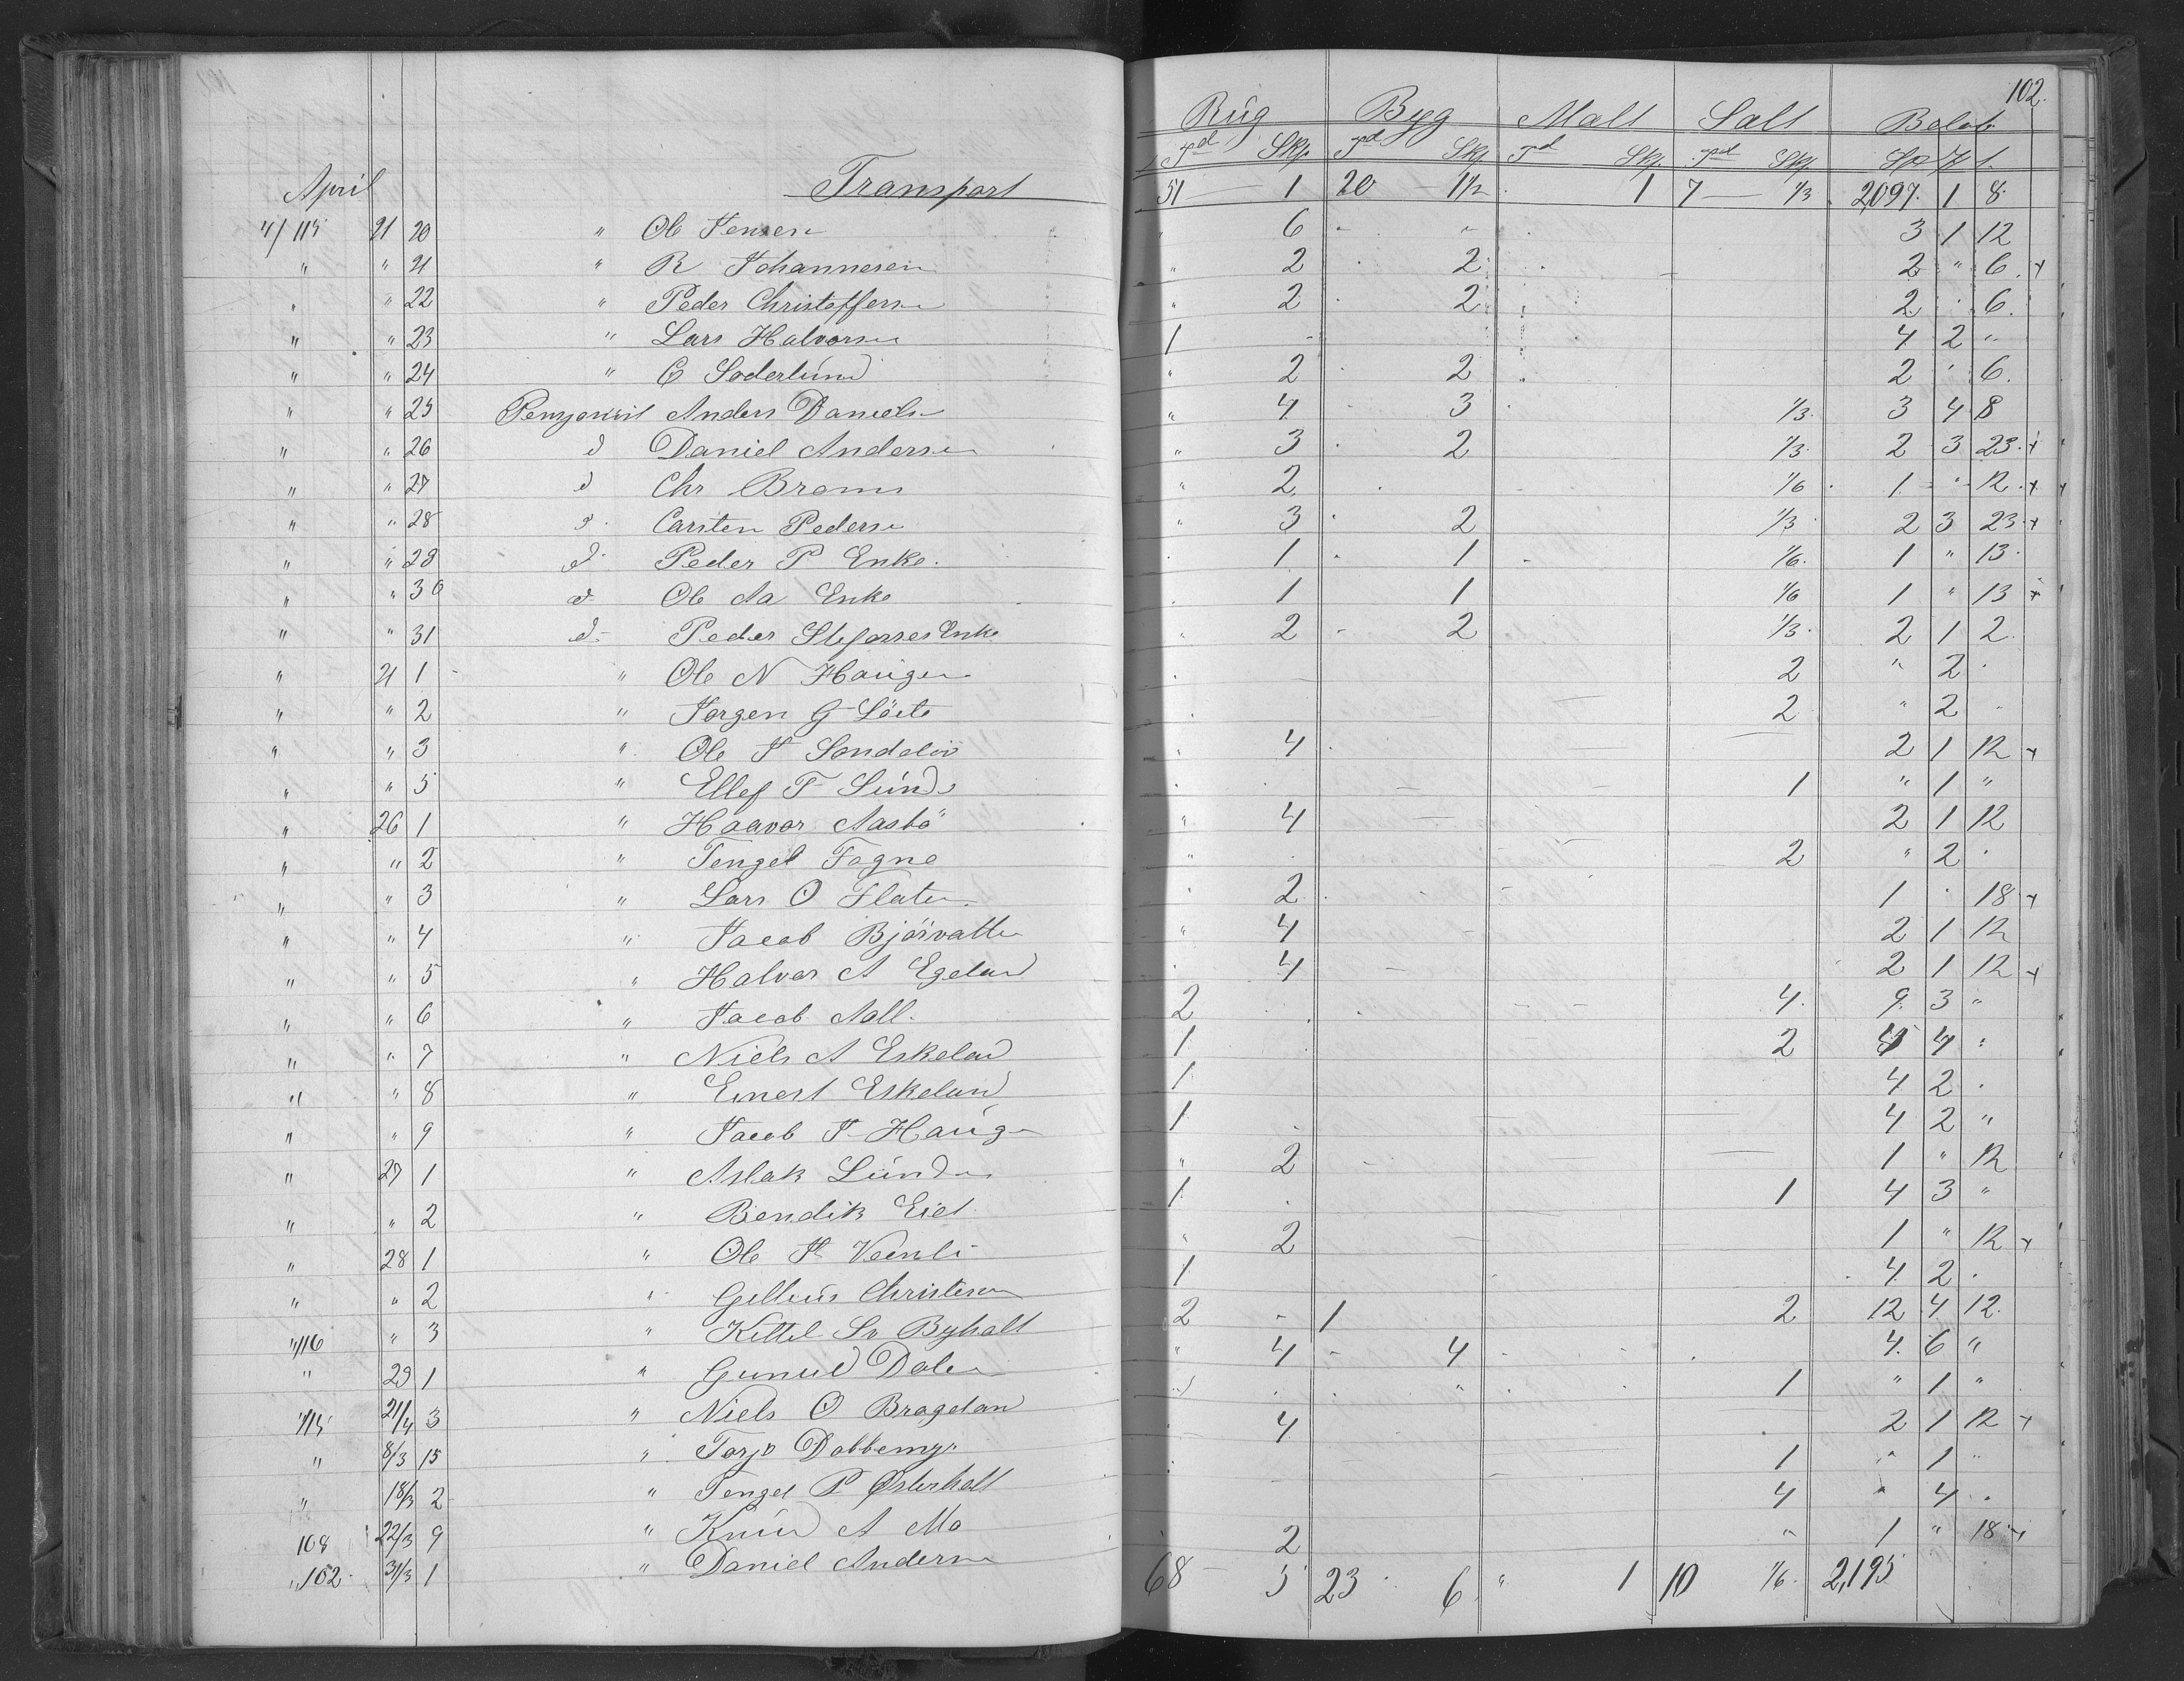 102.
Rúg Byg Malt Salt Beløb
Td Skp. Td Skp Td Skp. Td Skp. Sp ƶ s.
April Transport 51 — 1 20 — 1½ . 1 7 — 1/3 2,097. 1 8.
4/115 21 20 " Ole Jensen " 6 - " . 3 1 12
" " 21 " R Johannesen " 2 . 2 . 2 " 6. +
. " 22 " Peder Christoffersen " 2 . 2 2 . 6.
" " 23 " Lars Halvorsen 1 - 4. 2 "
" " 24 " C Soderlund " 2 . 2 . 2 . 6.
" " 25 Anders Daniels " 4. - 3 . 1/3. 3 4 8
" " 26 d Daniel Andersen " 3 . 2 1/3. 2 3 23. +
" " 27 d Chr Broms " 2. . 1/6 . 1. " 12. +
" " 28 d. Carsten Pedersen " 3 . 2 1/3 . 2 3 23. +
" " 29 d. Peder P Enke. . 1 - 1 - 1/6. 1 " 13.
" " 30 d. Ole Aa Enke . 1 1 1/6 1 " 13 +
" " 31 d. Peder Enke . 2 - 2 1/3. 2 1 2.
" 21 1 " Ole N Haugen . 2 " 2 .
" " 2 " Jorgen G . 2 " 2 .
" " 3 " Ole J Sondeløv . 4 . 2 1 12 +
" " 5 " Ellef T Sunde . 1 " 1 "
" 26 1 " Haavor Aasbö " 4 2 1 12
" " 2 " Tengel Fogne " . 2 " 2 .
" " 3 " Lars O Flaten . 2 . 1 . 18 +
" " 4 " Jacob Björvatten " 4 2 1 12
" " 5 " Halvor A Egeland . 4 2 1 12 +
" " 6 " Jacob Aall. 2 4. 9. 3 "
" " 7 " Niels A Eskeland 1 2 4 4 "
" " 8 " Einert Eskeland 1 4 2 .
" " 9 " Jacob J Haugen 1 . 4 2 "
" 27 1 " Aslak Lunden " 2 1 " 12
" " 2 " Bendik Eiet 1 . 1 4 3 "
" 28 1 " Ole P " 2 1 " 12 +
" " 2 " Christensen 1 4. 2 .
"/116 " 3 " Kittel Sv Byhalt 2 - 1 2 12 4 12.
" 29 1 " Gunuld Dalen " 4 - 4 4. 6 "
"/115 21/4 3 " Niels O Brageland . . " . 1 " 1 "
" 8/3 15 " Torjo Dobbemyr . 4 2 1 12 +
" 18/3 2 " Tengel P Østerholt 1 " 1 "
108 22/3 9 " Knud A Mo 4 " 4 .
" 102. 31/3 1 " Daniel Andersen 2 " 1 " 18 +
68 — 5 23 . 6 " 1 10 1/6. 2,195